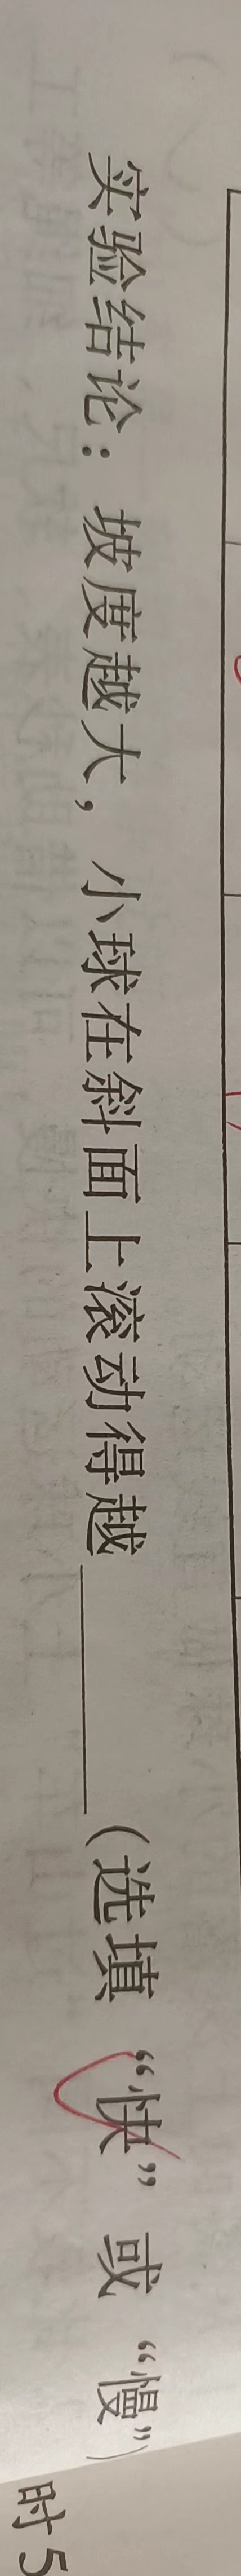 实验结论：坡度越大，小球在斜面上滚动得越______（选填“快”或“慢”）
时5